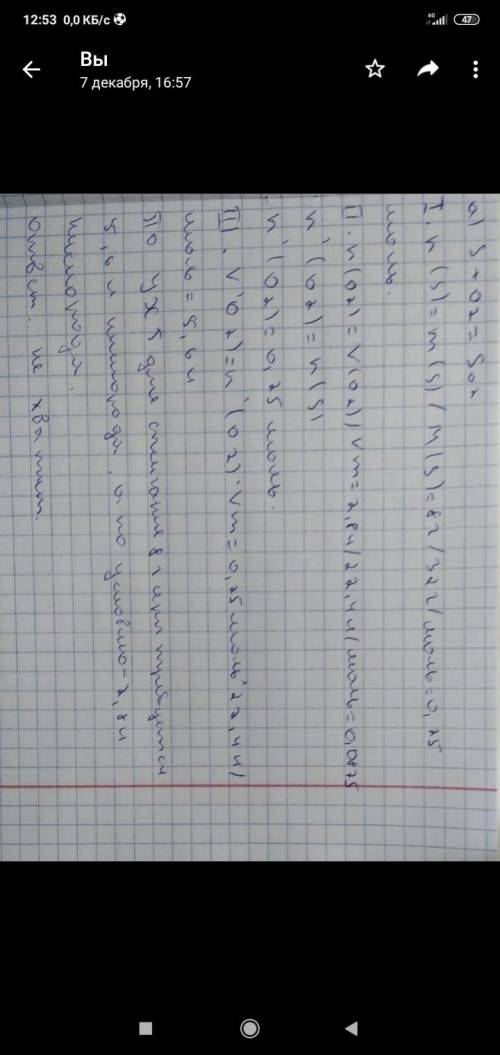 12:53 0,0 КБ/с
4G
47
Вы
7 декабря, 16:57
а) S+O2=SO2
I. n(S)=m(S)/M(S)=8г/32г/моль=0,25
моль.
II. n(O2)=V(O2)/Vm=2,8л/22,4л/моль=0,0875
n'(O2)=n(S)
n'(O2)=0,25 моль.
III. V'(O2)=n'(O2)·Vm=0,25моль·22,4л/
моль=5,6л
По ух для сжигания 8г серы требуется
5,6л кислорода, а по условию-2,8л
кислорода.
Ответ. не хватит.